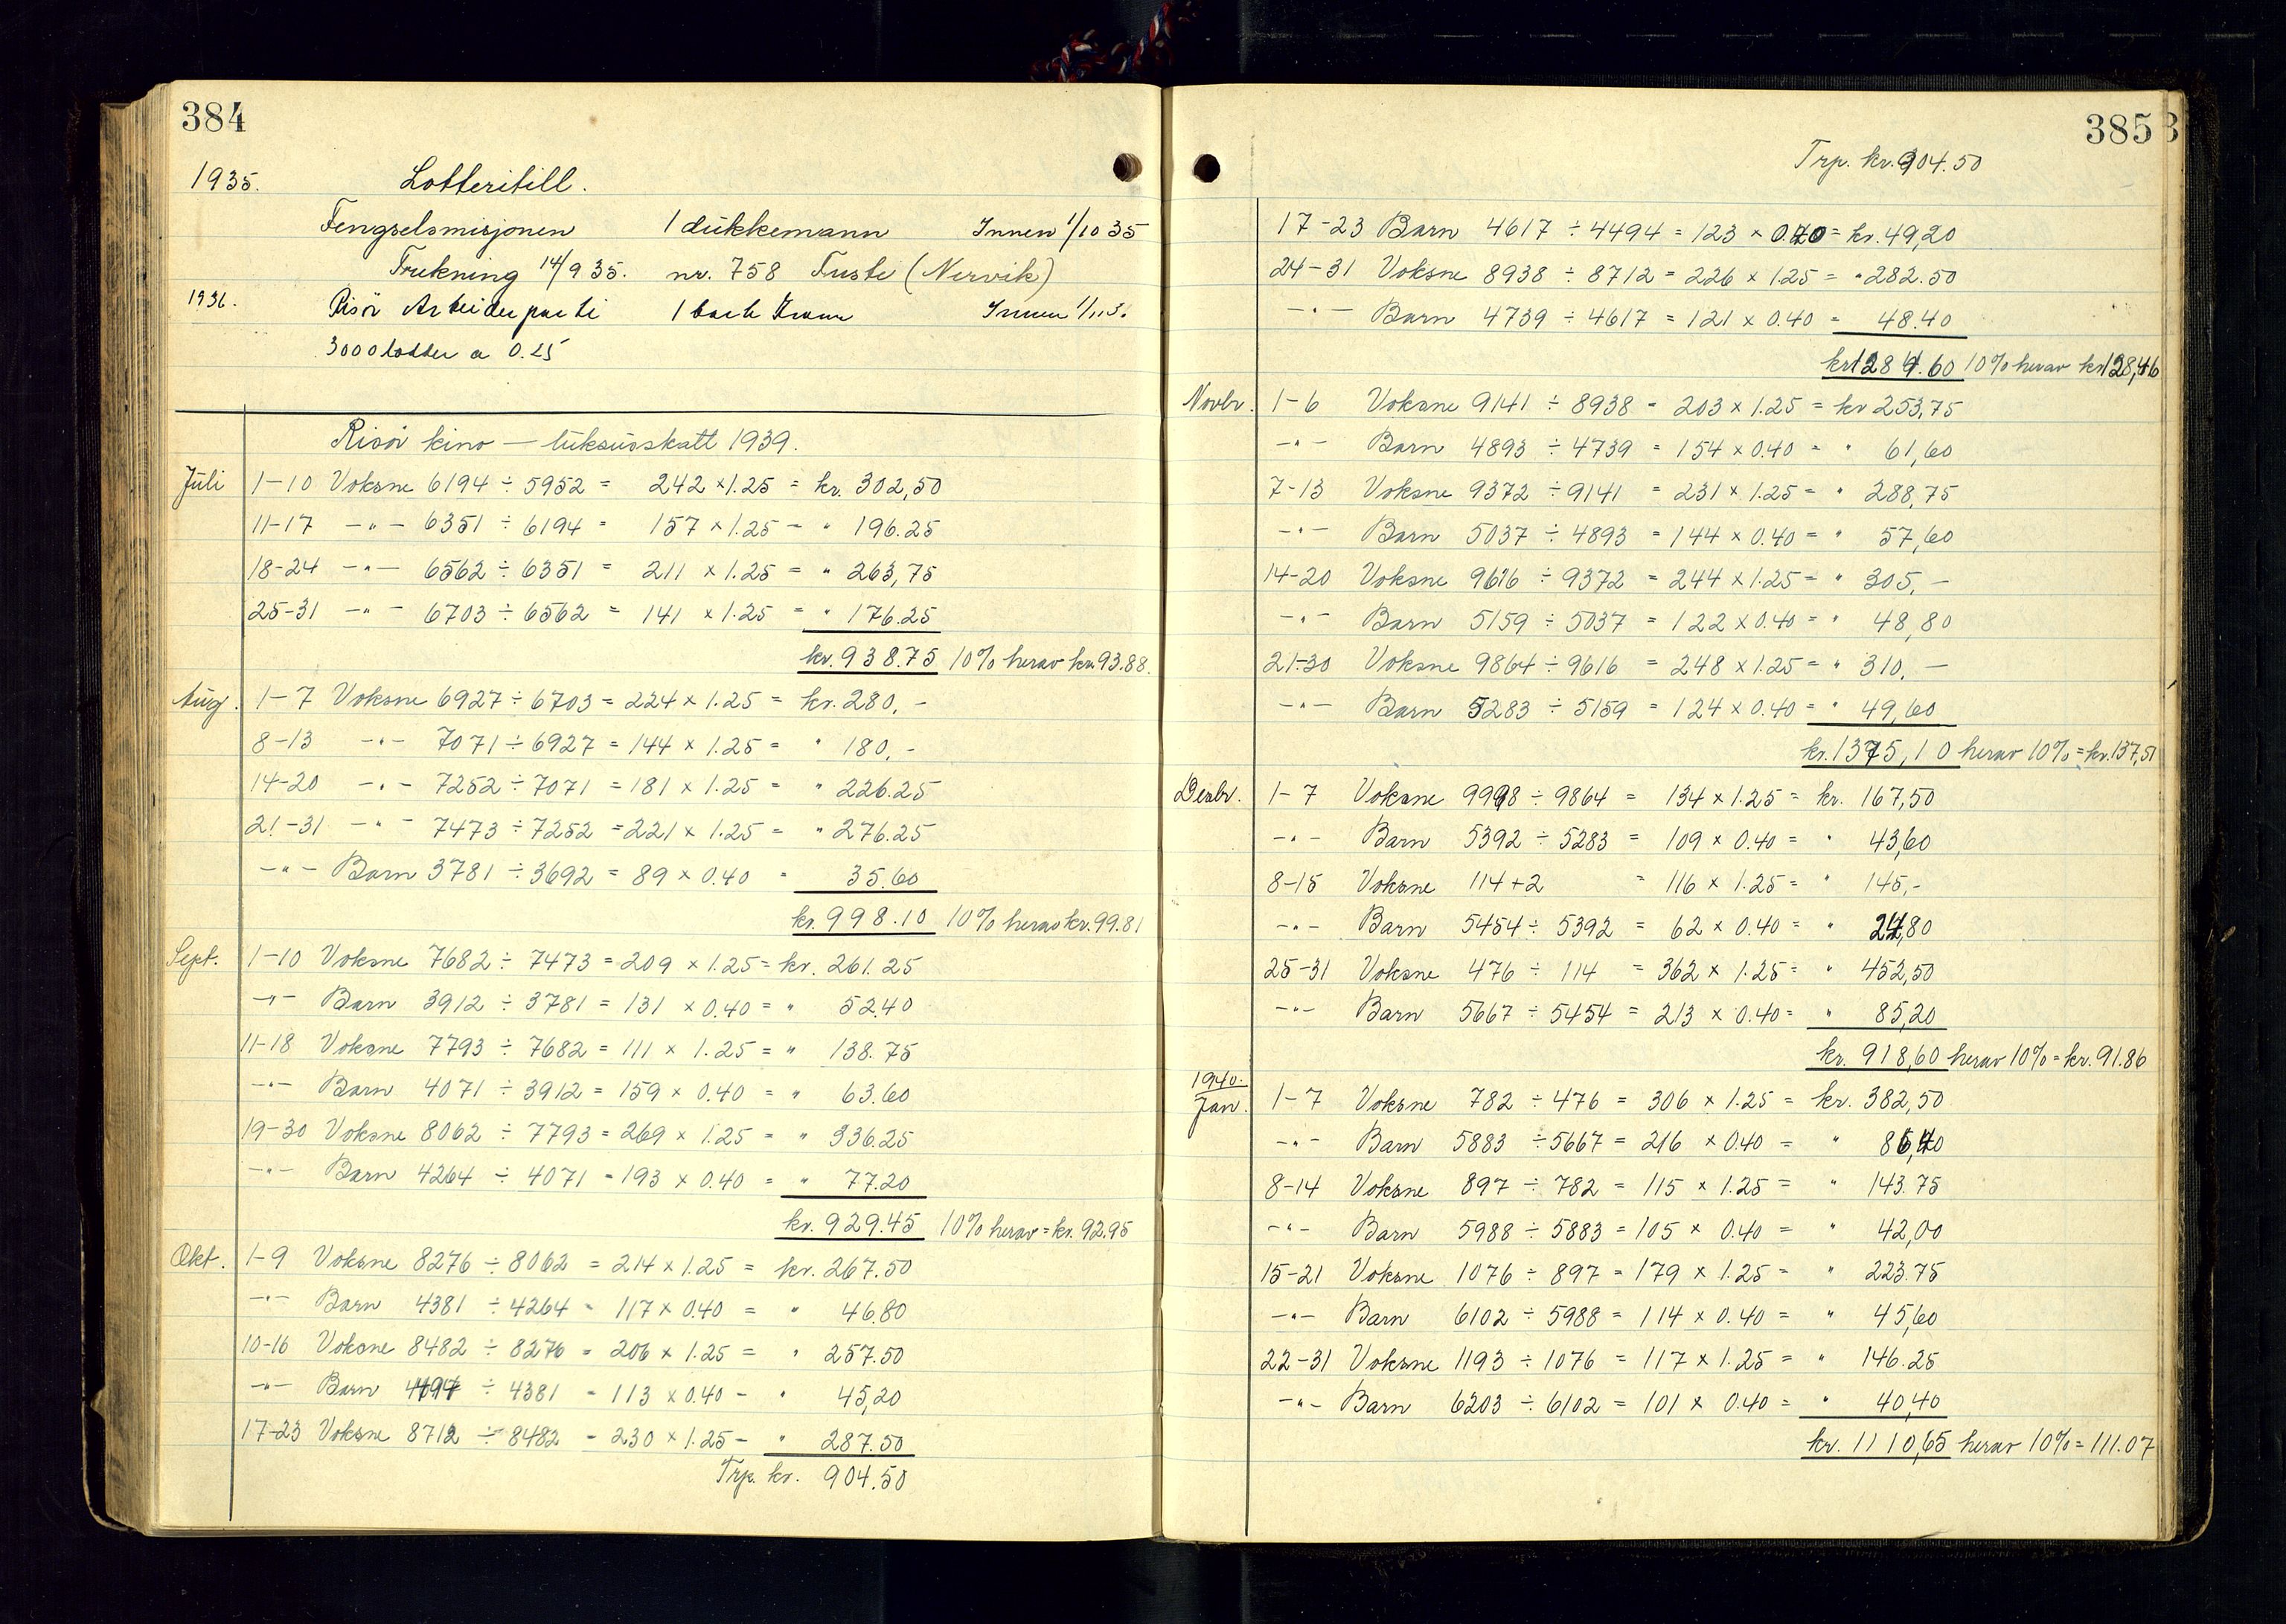 384
1935. Lotteritill.
Fengselsmisjonen 1 dukkemann Innen 1/10 35
Trekning 14/9 35. nr. 758 Tuste (Nervik)
1936. Risör Arbeiderparti 1 Innen
3000 lodder a 0.25
Risör kino — luksusskatt 1939.
Juli 1-10 Voksne 6194 ÷ 5952 = 242 × 1.25 = kr. 302,50
11-17 -"- 6351 ÷ 6194 = 157 × 1.25 = " 196.25
18-24 -"- 6562 ÷ 6351 = 211 × 1.25 = " 263,75
25-31 -"- 6703 ÷ 6562 = 141 × 1.25 = " 176.25
kr. 938.75 10% herav kr. 93.88.
Aug. 1-7 Voksne 6927 ÷ 6703 = 224 × 1.25 = kr. 280,-
8-13 -"- 7071 ÷ 6927 = 144 × 1.25 = " 180,-
14-20 -"- 7252 ÷ 7071 = 181 × 1.25 = " 226.25
21-31 -"- 7473 ÷ 7252 = 221 × 1.25 = " 276.25
-"- Barn 3781 ÷ 3692 = 89 × 0.40 = 35.60
kr. 998.10 10% herav kr. 99.81
Sept. 1-10 Voksne 7682 ÷ 7473 = 209 × 1.25 = kr. 261.25
-"- Barn 3912 ÷ 3781 = 131 × 0.40 = " 52.40
11-18 Voksne 7793 ÷ 7682 = 111 × 1.25 = " 138.75
-"- Barn 4071 ÷ 3912 = 159 × 0.40 = " 63.60
19-30 Voksne 8062 ÷ 7793 = 269 × 1.25 = " 336.25
-"- Barn 4264 ÷ 4071 = 193 × 0.40 = " 77.20
kr. 929.45 10% herav = kr. 92.95
Okt. 1-9 Voksne 8276 ÷ 8062 = 214 × 1.25 = kr. 267.50
-"- Barn 4381 ÷ 4264 = 117 × 0.40 = " 46.80
10-16 Voksne 8482 ÷ 8276 = 206 × 1.25 = " 257.50
-"- Barn 4494 ÷ 4381 = 113 × 0.40 - " 45,20
17-23 Voksne 8712 ÷ 8482 = 230 × 1.25 - " 287.50
Trp. kr. 904.50
385
Trp. kr. 904.50
17-23 Barn 4617 ÷ 4494 = 123 × 0.40 = kr. 49,20
24-31 Voksne 8938 ÷ 8712 = 226 × 1.25 = " 282.50
-"- Barn 4739 ÷ 4617 = 121 × 0.40 = 48.40
kr 1284.60 10% herav kr 128,46
Novbr. 1-6 Voksne 9141 ÷ 8938 = 203 × 1.25 = kr 253,75
-"- Barn 4893 ÷ 4739 = 154 × 0.40 = " 61,60
7-13 Voksne 9372 ÷ 9141 = 231 × 1.25 = " 288,75
-"- Barn 5037 ÷ 4893 = 144 × 0.40 = " 57,60
14-20 Voksne 9616 ÷ 9372 = 244 × 1.25 = " 305,-
-"- Barn 5159 ÷ 5037 = 122 × 0.40 = " 48,80
21-30 Voksne 9864 ÷ 9616 = 248 × 1.25 = " 310,-
-"- Barn 5283 ÷ 5159 = 124 × 0.40 = " 49,60
kr. 1375,10 herav 10% = kr. 137,51
Desbr. 1-7 Voksne 9998 ÷ 9864 = 134 × 1.25 = kr. 167,50
-"- Barn 5392 ÷ 5283 = 109 × 0.40 = " 43,60
8-15 Voksne 114+2 = 116 × 1.25 = " 145,-
-"- Barn 5454 ÷ 5392 = 62 × 0.40 = " 24,80
25-31 Voksne 476 ÷ 114 = 362 × 1.25 = " 452,50
-"- Barn 5667 ÷ 5454 = 213 × 0.40 = " 85,20
kr. 918,60 herav 10% = kr. 91.86
1940.
Jan. 1-7 Voksne 782 ÷ 476 = 306 × 1.25 = kr. 382,50
-"- Barn 5883 ÷ 5667 = 216 × 0.40 = " 86,40
8-14 Voksne 897 ÷ 782 = 115 × 1.25 = " 143.75
-"- Barn 5988 ÷ 5883 = 105 × 0.40 = " 42,00
15-21 Voksne 1076 ÷ 897 = 179 × 1.25 = " 223.75
-"- Barn 6102 ÷ 5988 = 114 × 0.40 = " 45,60
22-31 Voksne 1193 ÷ 1076 = 117 × 1.25 = " 146.25
-"- Barn 6203 ÷ 6102 = 101 × 0.40 = " 40,40
kr. 1110,65 herav 10% = 111.07